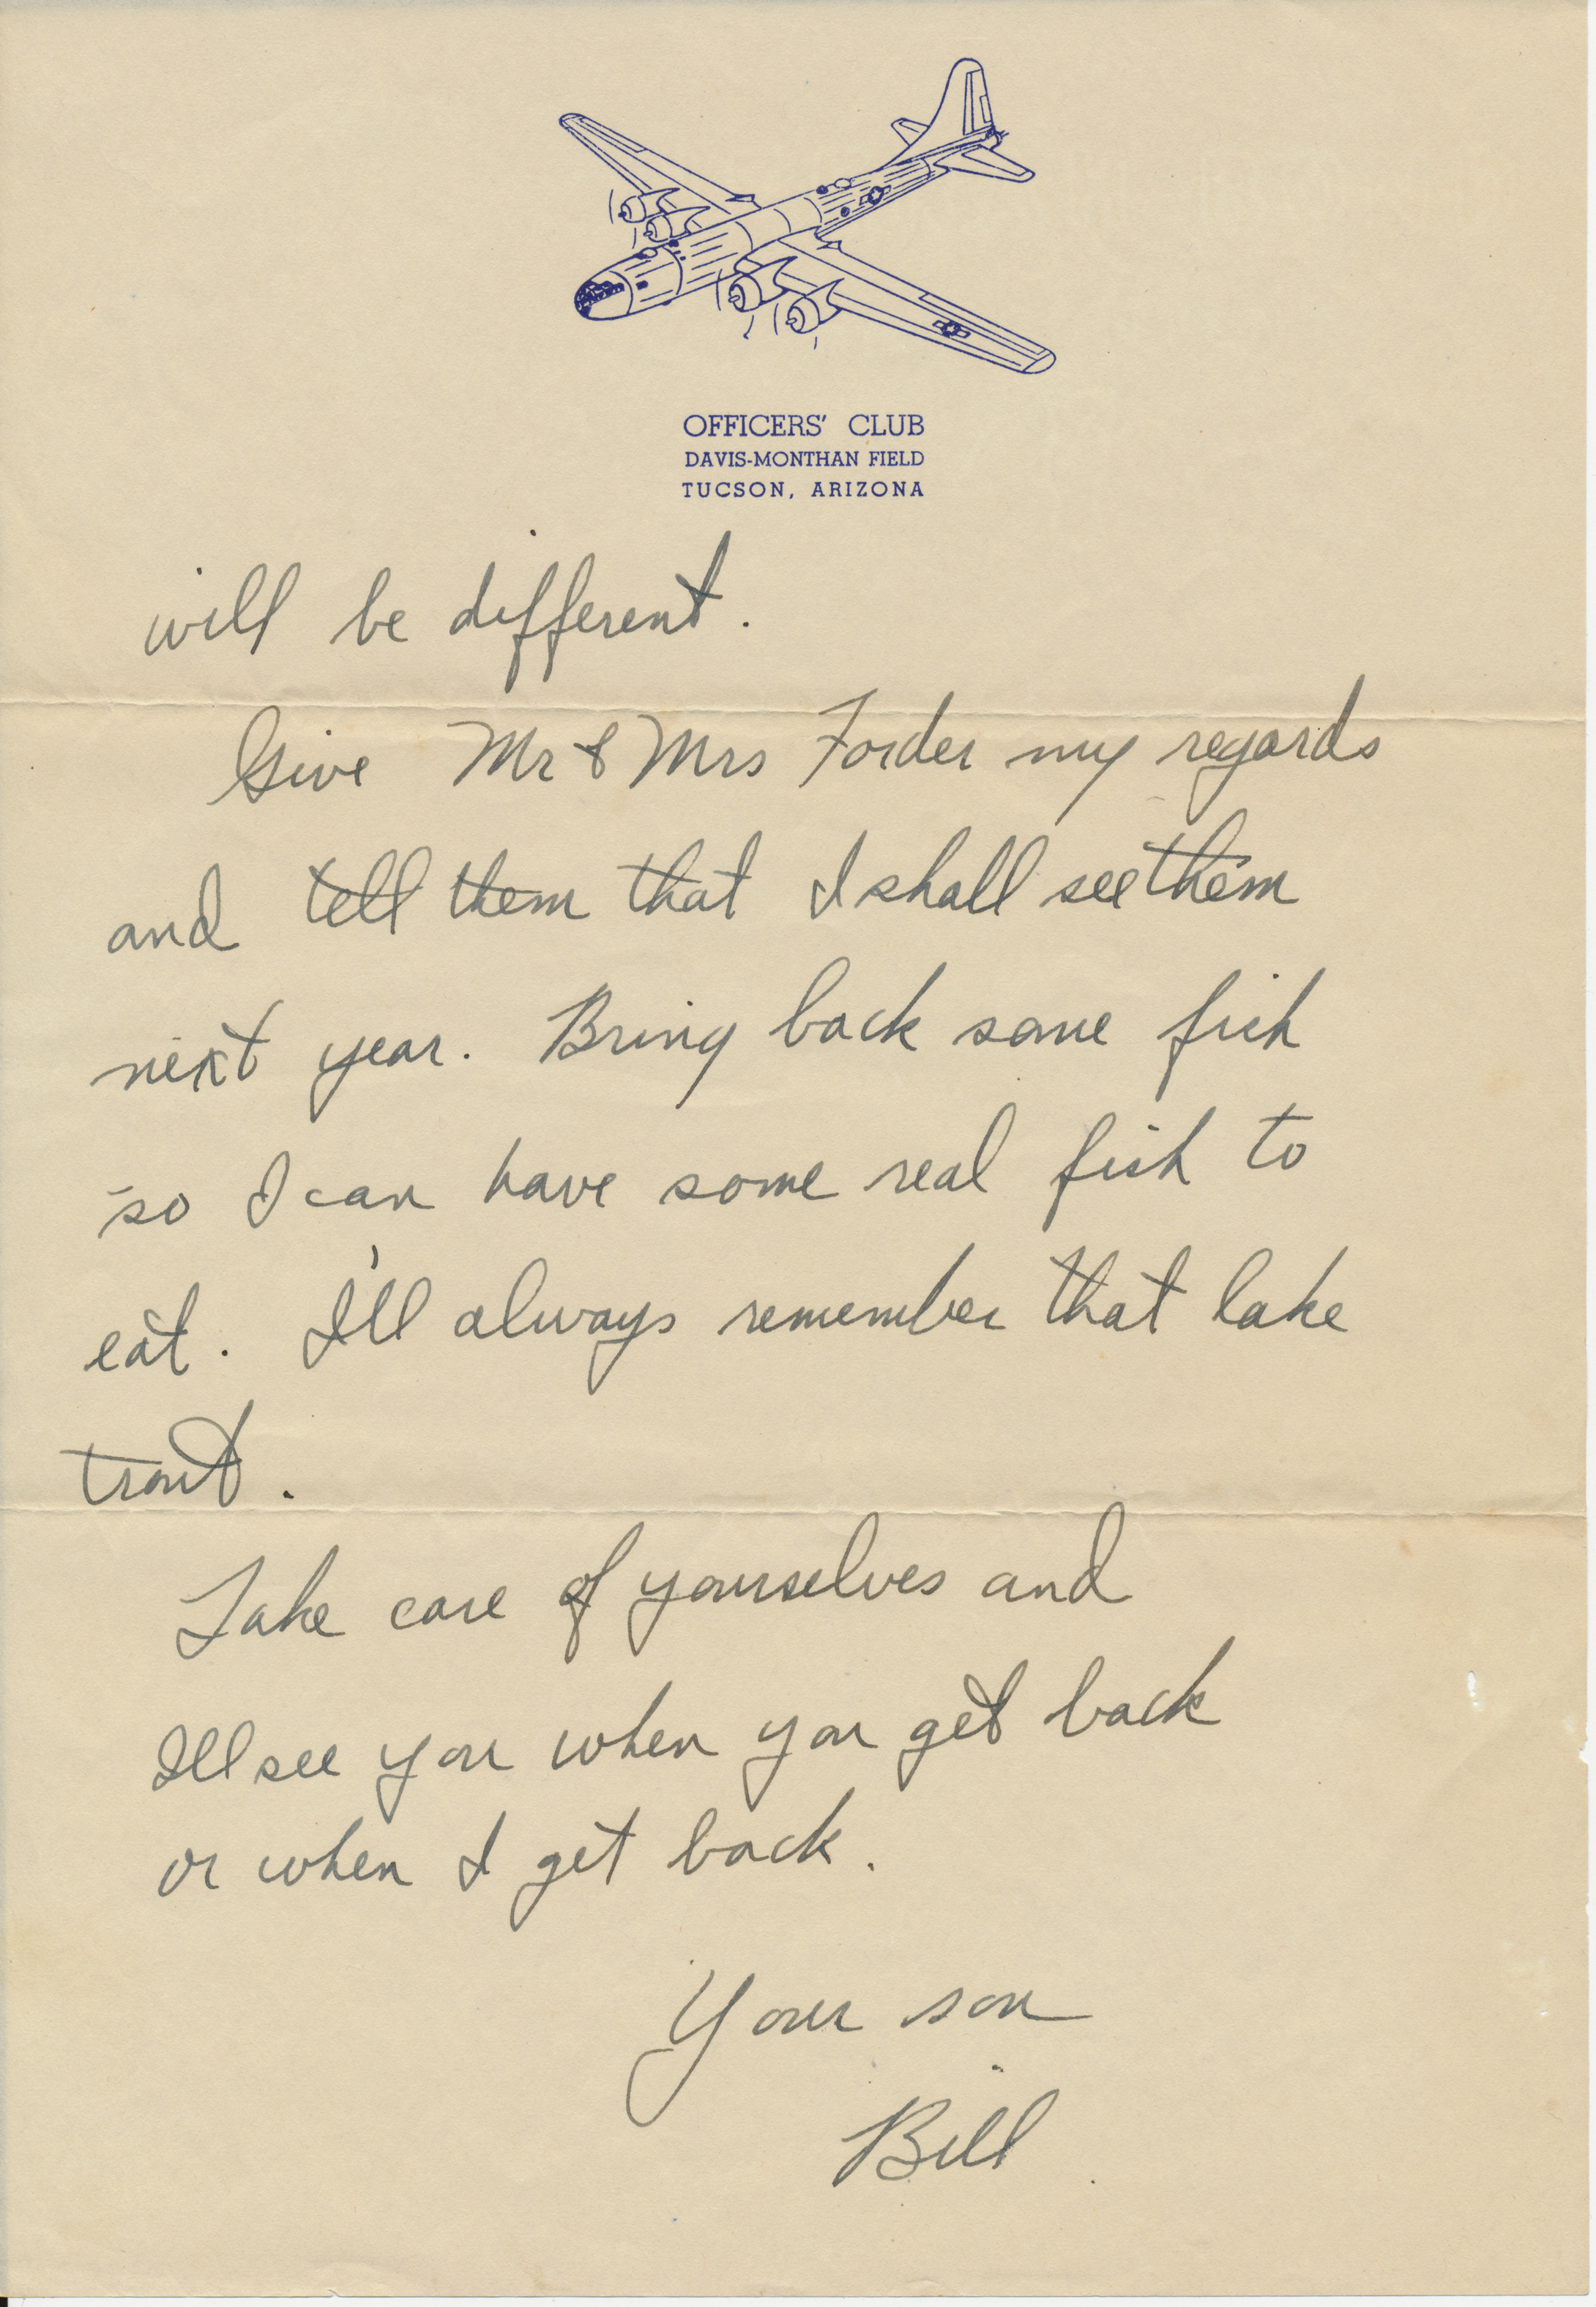 OFFICERS' CLUB
DAVIS-MONTHAN FIELD
TUCSON, ARIZONA
will be different.
Give Mr & Mrs Forder my regards
and tell them that I shall see them
next year. Bring back some fish
so I can have some real fish to
eat. I'll always remember that lake
trout.
Take care of yourselves and
Ill see you when you get back
or when I get back.
Your son
Bill